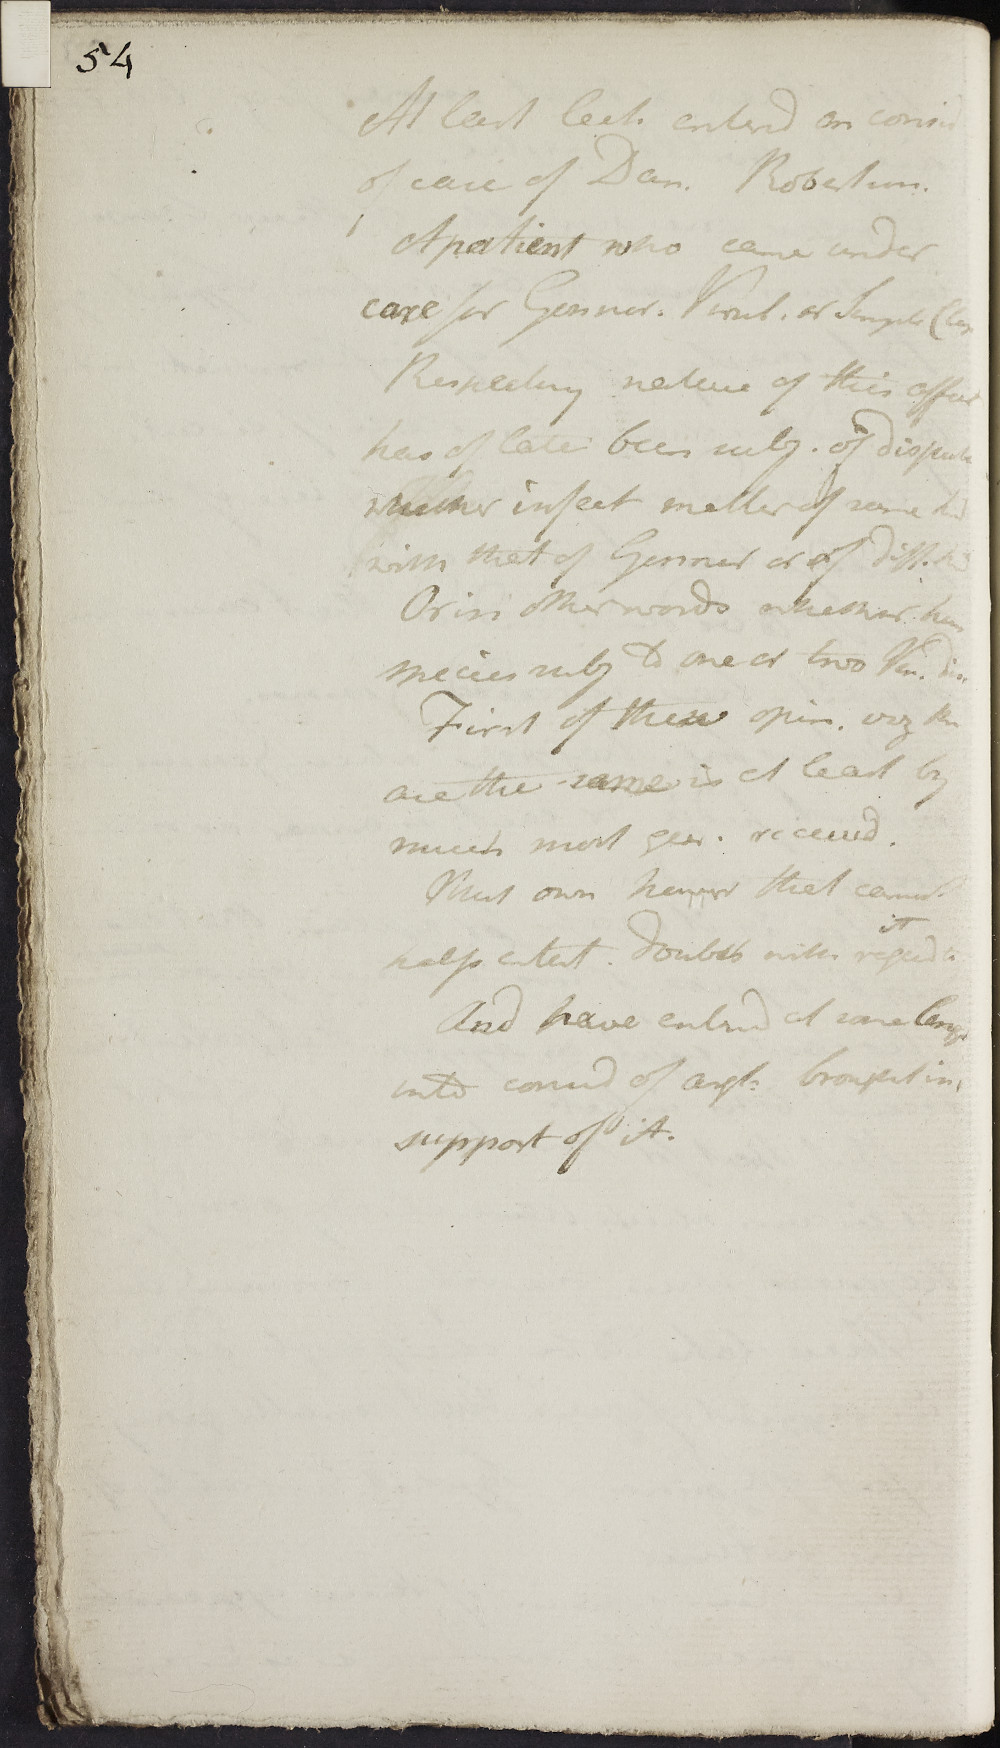 54
At last lect. enterd on consid
of case of Dan. Robertson.
A patient who came under
care for Gonnor. Virul. or Simple Clap
Respecting nature of this affect
has of late been subj. of dispute
whether infect matter of same kd
with that of Gonnor or of diff. kd
Or in other words whether hum
species subj to one or two Ven. dis
First of these opin. viz
are the same is at least by
much most gen. receivd.
Must own however that cannot
help entert. doubts with regard to it
And have enterd at some length
into consid of argts brought in
support of it.